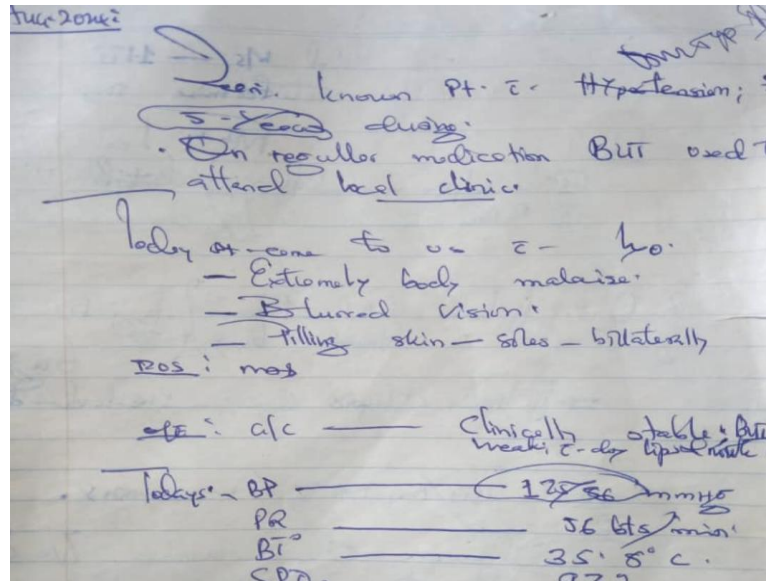 Seen. known Pt. c̄. Hypertension;
5-Years during.
. On reguller medication BUT used T
attend local clinic.
Today pt-come to us c̄ - h/o.
— Extremely body malaise.
— Blurred vision.
— Pilling skin — soles — billaterally
ROS: mos
O/E: a/c —— Clinically stable. BUT
weak, c̄ - dry lips
Todays. - BP —— 125/56 mmHg
PR —— 56 bts/min.
BT° —— 35.8° C.
SPO